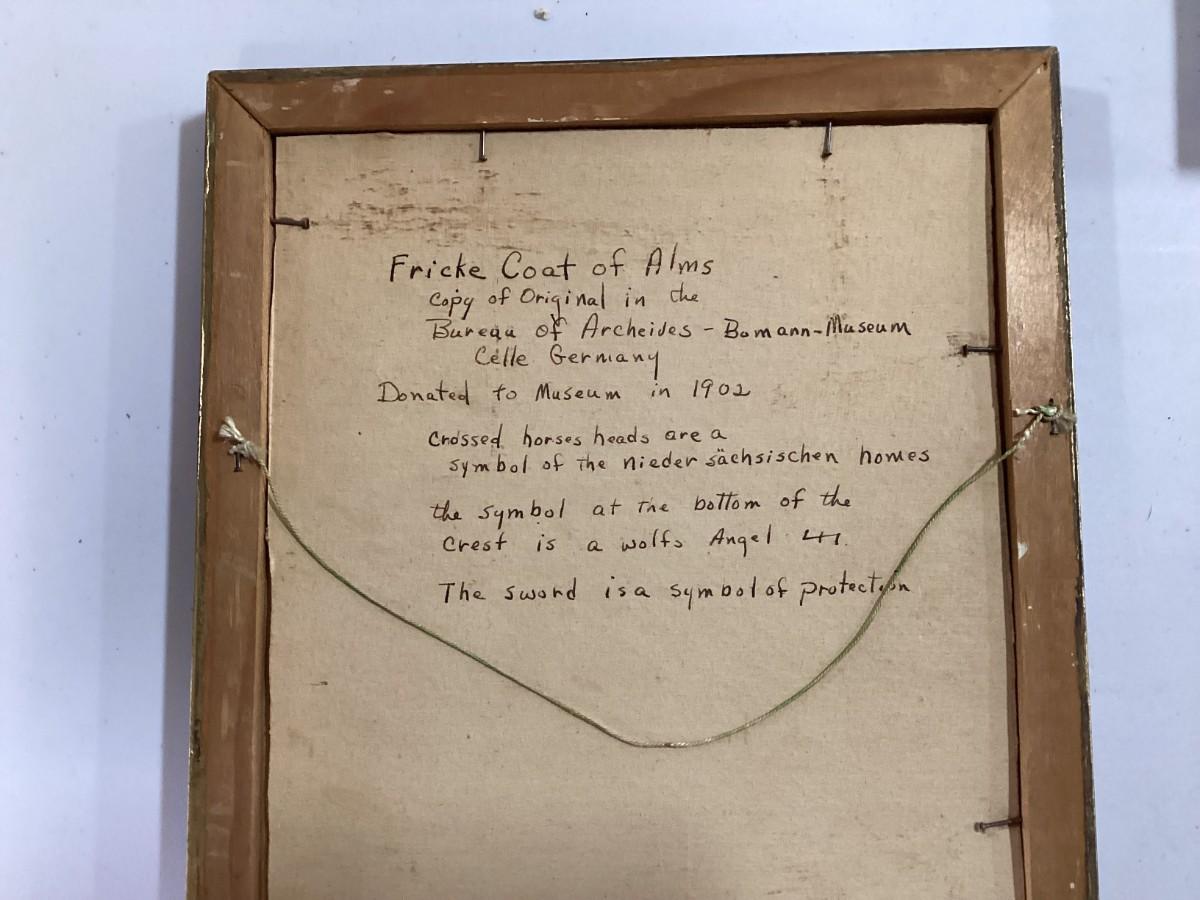 Fricke Coat of Alms
Copy of Original in the
Bureau of Archeides - Bomann-Museum
Celle Germany
Donated to Museum in 1902
Crossed horses heads are a
symbol of the nieder sächsischen homes
the symbol at the bottom of the
Crest is a wolfs Angel
The sword is a symbol of protection